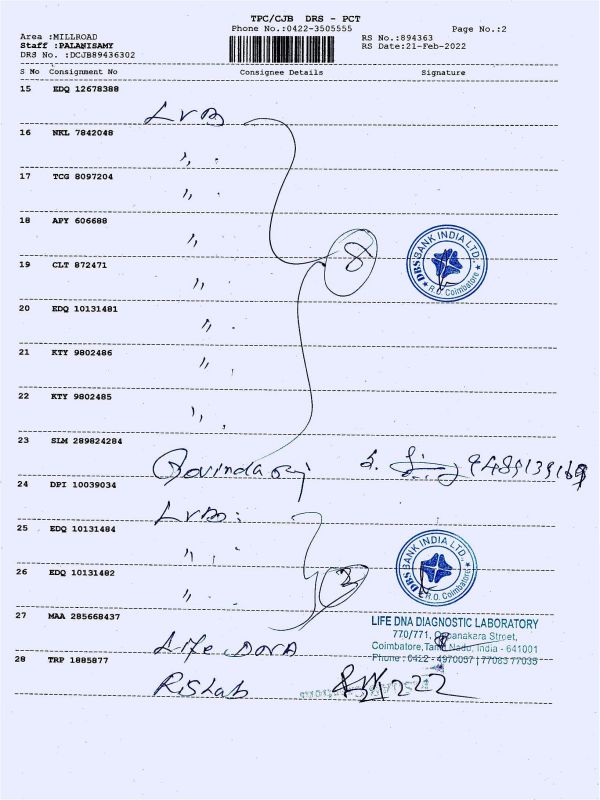 TPC/CJB DRS - PCT
Phone No.:0422-3505555 Page No.:2
Area :MILLROAD RS No.:894363
Staff :PALANISAMY RS Date:21-Feb-2022
DRS No. :DCJB89436302
S No Consignment No Consignee Details Signature
15 EDQ 12678388
LVB
16 NKL 7842048
,, .
17 TCG 8097204
,, .
18 APY 606688
,, .
19 CLT 872471
,, .
8
DBS BANK INDIA LTD.
★ R.O. Coimbatore ★
20 EDQ 10131481
,, .
21 KTY 9802486
,, .
22 KTY 9802485
,, .
23 SLM 289824284
Govindaraj
24 DPI 10039034
LVB
25 EDQ 10131484
,, .
DBS BANK INDIA LTD.
R.O. Coimbatore
26 EDQ 10131482
,, .
27 MAA 285668437
Life DNA
LIFE DNA DIAGNOSTIC LABORATORY
770/771, Oppanakara Street,
Coimbatore, Tamil Nadu, India - 641001
Phone : 0422 - 4970057 | 77083 77035
28 TRP 1885877